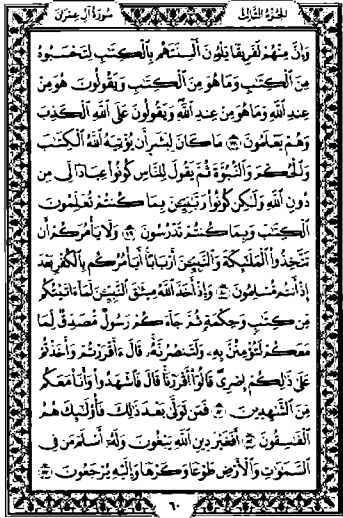 سورة آل عمران
الجزء الثالث
وَإِنَّ مِنْهُمْ لَفَرِيقًا يَلْوُونَ أَلْسِنَتَهُم بِالْكِتَٰبِ لِتَحْسَبُوهُ
مِنَ الْكِتَٰبِ وَمَا هُوَ مِنَ الْكِتَٰبِ وَيَقُولُونَ هُوَ مِنْ
عِندِ اللَّهِ وَمَا هُوَ مِنْ عِندِ اللَّهِ وَيَقُولُونَ عَلَى اللَّهِ الْكَذِبَ
وَهُمْ يَعْلَمُونَ ٧٨ مَا كَانَ لِبَشَرٍ أَن يُؤْتِيَهُ اللَّهُ الْكِتَٰبَ
وَالْحُكْمَ وَالنُّبُوَّةَ ثُمَّ يَقُولَ لِلنَّاسِ كُونُوا عِبَادًا لِّي مِن
دُونِ اللَّهِ وَلَٰكِن كُونُوا رَبَّٰنِيِّينَ بِمَا كُنتُمْ تُعَلِّمُونَ
الْكِتَٰبَ وَبِمَا كُنتُمْ تَدْرُسُونَ ٧٩ وَلَا يَأْمُرَكُمْ أَن
تَتَّخِذُوا الْمَلَٰئِكَةَ وَالنَّبِيِّينَ أَرْبَابًا أَيَأْمُرُكُم بِالْكُفْرِ بَعْدَ
إِذْ أَنتُم مُّسْلِمُونَ ٨٠ وَإِذْ أَخَذَ اللَّهُ مِيثَٰقَ النَّبِيِّينَ لَمَا ءَاتَيْتُكُم
مِّن كِتَٰبٍ وَحِكْمَةٍ ثُمَّ جَاءَكُمْ رَسُولٌ مُّصَدِّقٌ لِّمَا
مَعَكُمْ لَتُؤْمِنُنَّ بِهِ وَلَتَنصُرُنَّهُ قَالَ ءَأَقْرَرْتُمْ وَأَخَذْتُمْ
عَلَىٰ ذَٰلِكُمْ إِصْرِي قَالُوا أَقْرَرْنَا قَالَ فَاشْهَدُوا وَأَنَا مَعَكُم
مِّنَ الشَّٰهِدِينَ ٨١ فَمَن تَوَلَّىٰ بَعْدَ ذَٰلِكَ فَأُولَٰئِكَ هُمُ
الْفَٰسِقُونَ ٨٢ أَفَغَيْرَ دِينِ اللَّهِ يَبْغُونَ وَلَهُ أَسْلَمَ مَن فِي
السَّمَٰوَٰتِ وَالْأَرْضِ طَوْعًا وَكَرْهًا وَإِلَيْهِ يُرْجَعُونَ ٨٣
٦٠